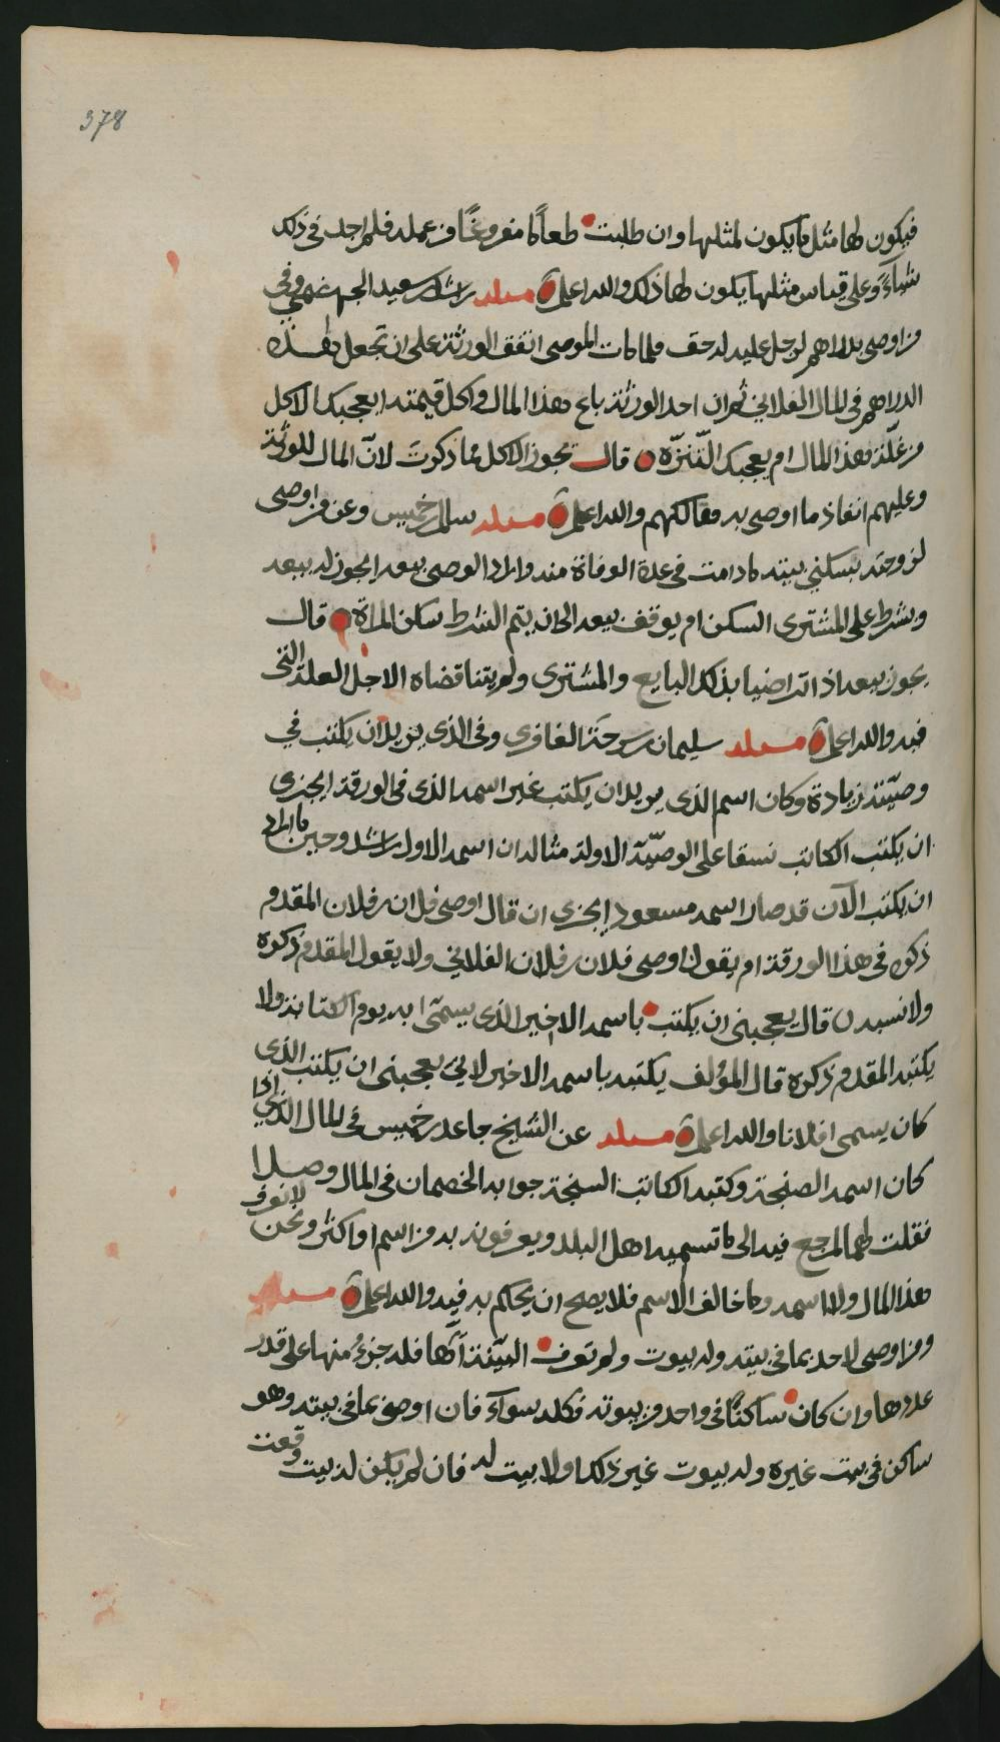 378
فيكون لها مثل ما يكون لمثلها وان طلبت طعاما مفروغا من عمله فلم اجد في ذلك
شيئا وعلى قياس مثلها يكون لها ذلك والله اعلم مسئلة راشد بن سعيد الجهضمي وفي
من اوصى بدراهم لرجل عليه له حق فلما مات الموصي اتفق الورثة على ان تجعل هذه
الدراهم في المال الفلاني ثم ان احد الورثة باع هذا المال واكل قيمته ايعجبك الاكل
من غلة هذا المال ام يعجبك التنزه قال يجوز الاكل مما ذكرت لان المال للورثة
وعليهم انفاذ ما اوصى به هالكهم والله اعلم مسئلة سالم بن خميس وعن من اوصى
لزوجته بسكنى بيته ما دامت في عدة الوفاة منه واراد الوصي بيعه ايجوز له بيعه
ويشرط على المشتري السكن ام يوقف بيعه الى ان يتم الشرط سكن المراة قال
يجوز بيعه اذا تراضيا بذلك البايع والمشتري ولم يتناقضاه لاجل العلة التى
فيه والله اعلم مسئلة سليمان بن الغافري وفي الذي يريد ان يكتب في
وصيته زيادة وكان اسم الذى يريد ان يكتب غير اسمه الذى في الورقة ايجزى
ان يكتب الكاتب نسقا على الوصية الاولة مثاله ان اسمه الاول راشد وحين ما اراد
ان يكتب الآن قد صار اسمه مسعود ايجزي ان قال اوصى فلان بن فلان المقدم
ذكره في هذا الورقة ام يقول اوصى فلان بن فلان الفلاني ولا يقول المقدم ذكره
ولا نسبه قال يعجبني ان يكتب باسمه الاخير الذى يسمى به يوم الكتابة ولا
يكتبه المقدم ذكره قال المؤلف يكتبه باسمه الاخير لا يعجبنى ان يكتب الذى
كان يسمى فلانا والله اعلم مسئلة عن الشيخ جاعد بن خميس في المال الذي اذا
كان اسمه الصنجة وكتبه الكاتب السنجة جوابه الخصمان في المال وصلا
فقلت لهما المرجع فيه الى ما تسميه اهل البلد ويعرفونه به من اسم او اكثر ونحن لا نعرف
هذا المال ولا اسمه وما خالف الاسم فلا يصح ان يحكم به فيه والله اعلم مسئلة
ومن اوصى لاحد بما في بيته وله بيوت ولم تعرف البينة ايها فله جزء منها على قدر
عددها وان كان ساكنا في واحد من بيوته فكله سوآء فان اوصى بما في بيته وهو
ساكن في بيت غيره وله بيوت غير ذلك اولا بيت له فان لم يكن له بيت وقعت